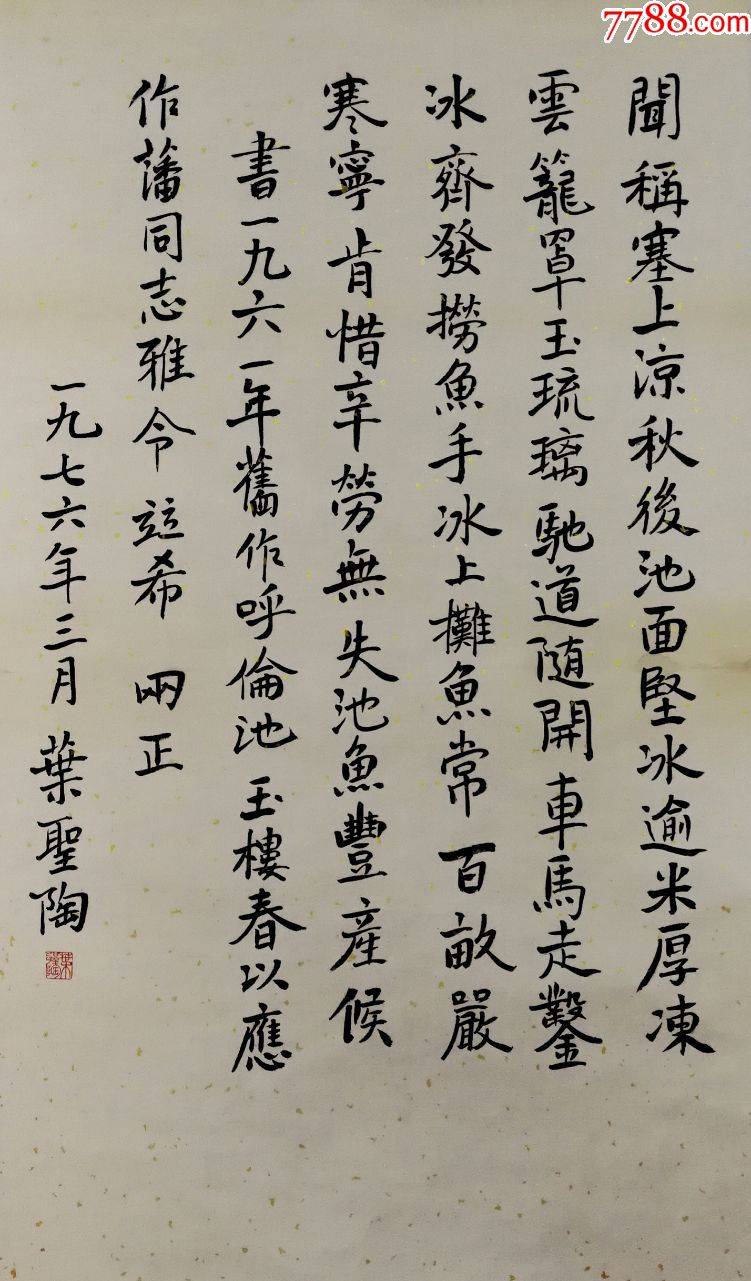 7788.com
聞稱塞上涼秋後池面堅冰逾米厚凍
雲籠罩玉琉璃馳道随開車馬走鑿
冰齊發撈魚手冰上攤魚常百畝嚴
寒寧肯惜辛勞無失池魚豐産候
書一九六一年舊作呼倫池玉樓春以應
作藩同志雅令 竝希 兩正
一九七六年三月 葉聖陶